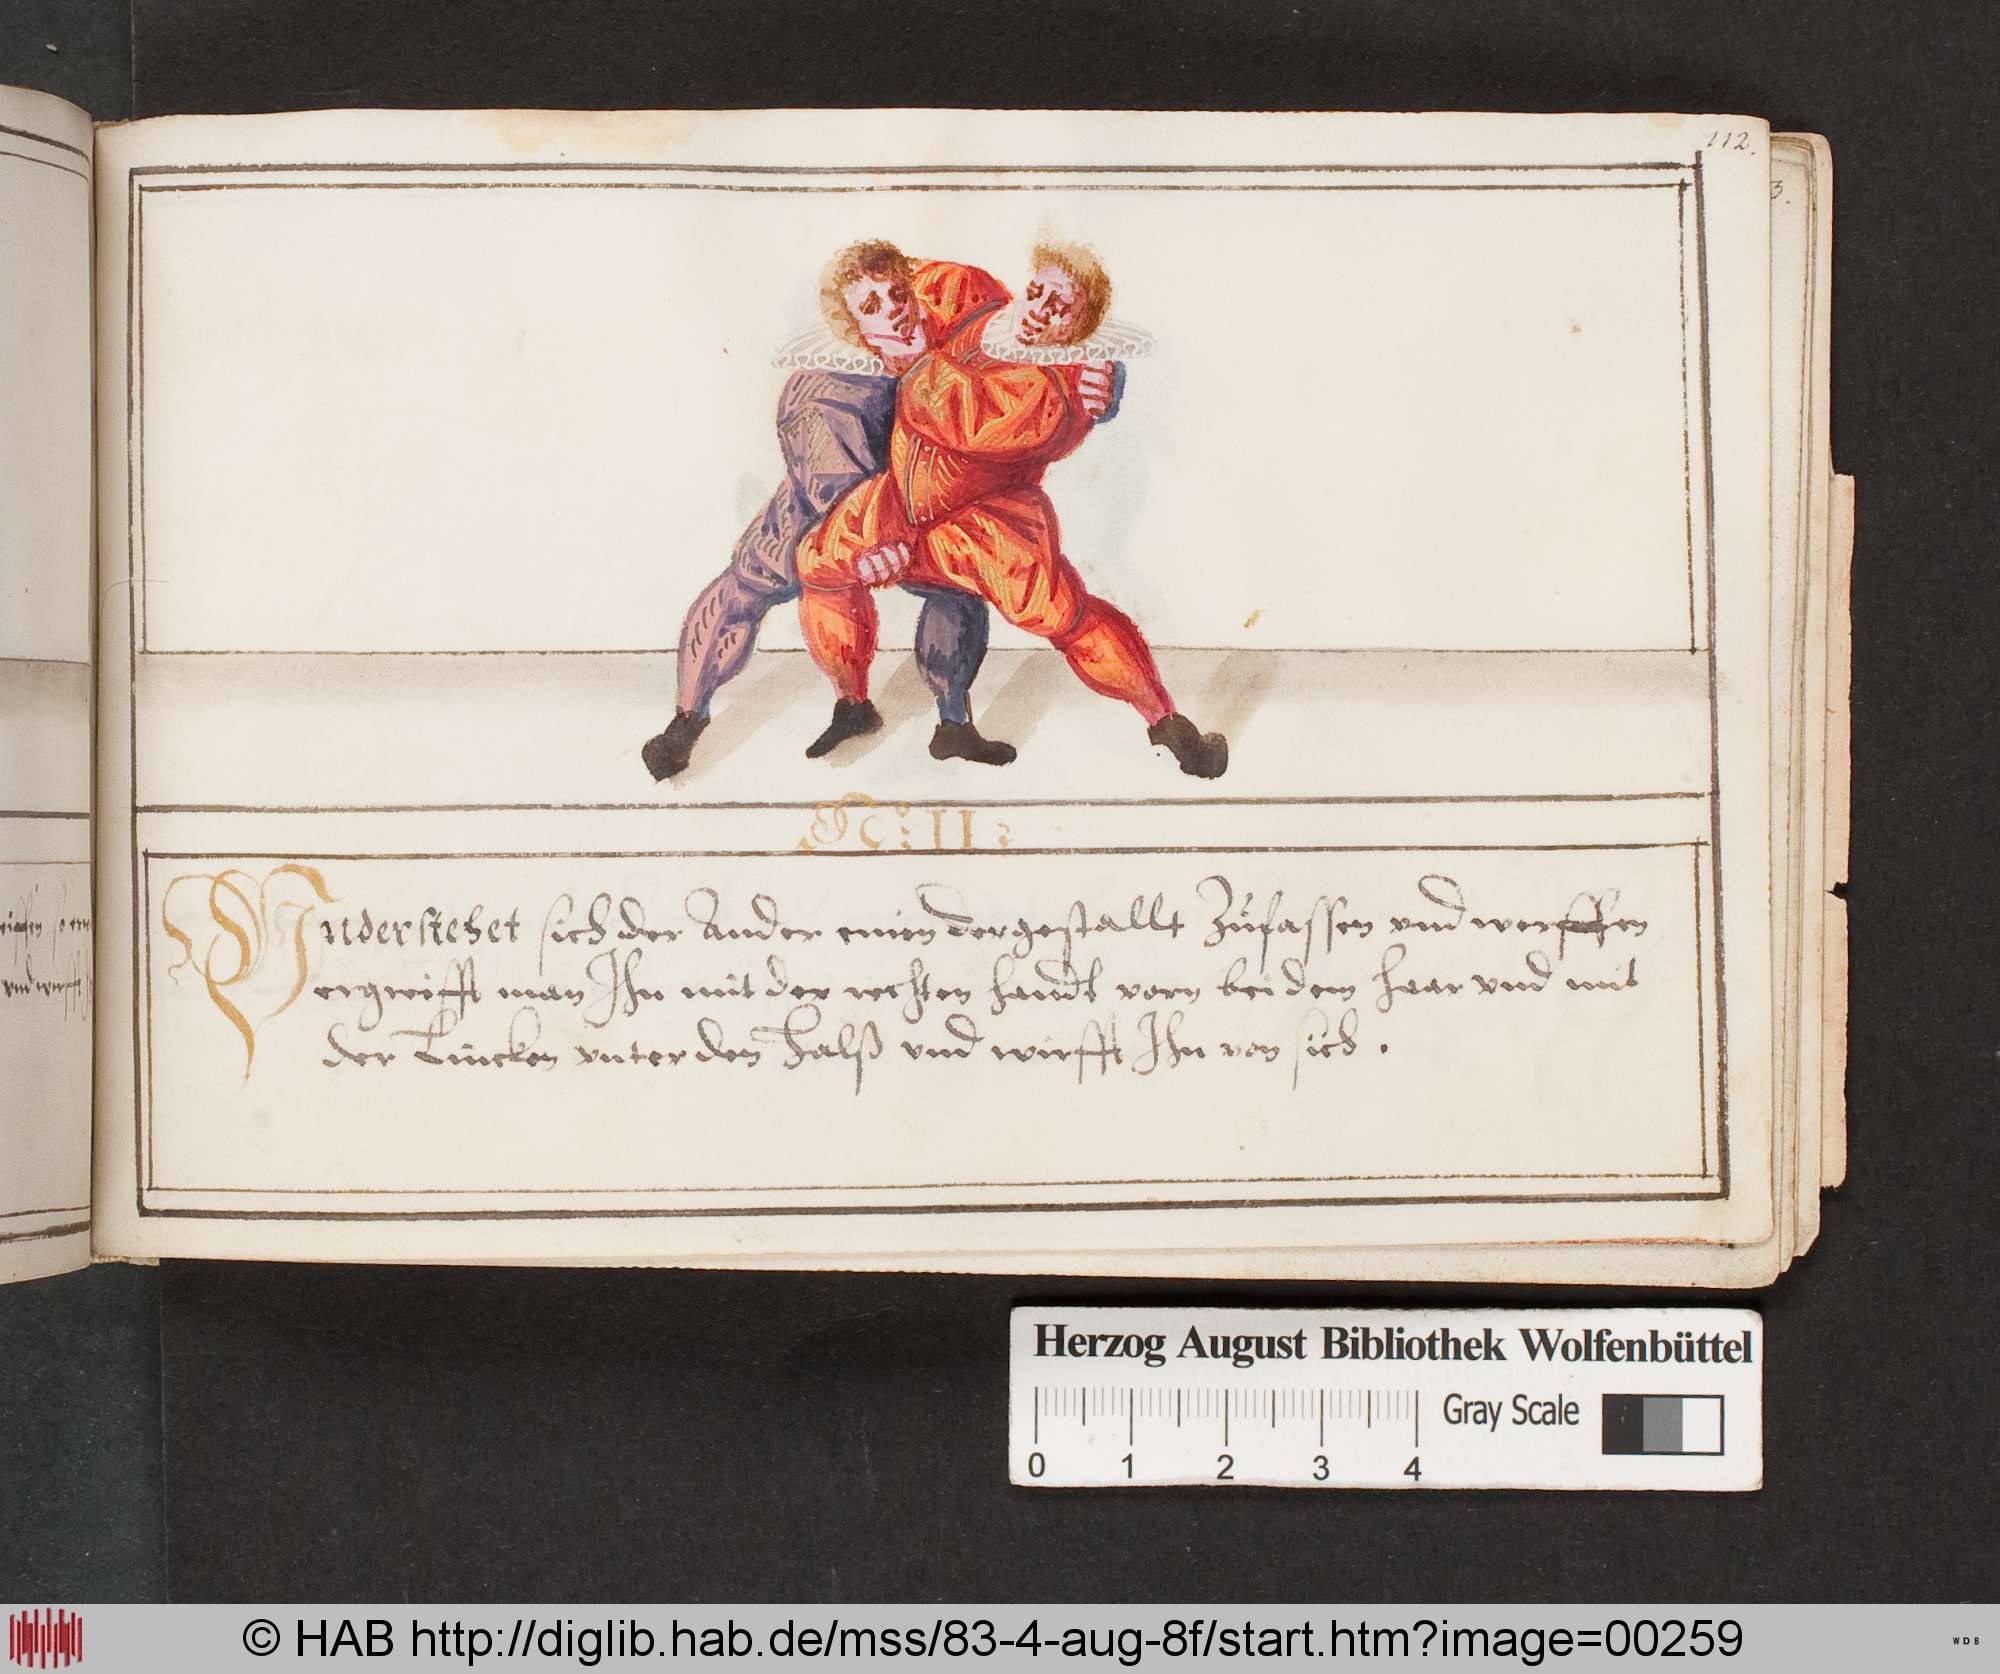 112.
3.
N: 11:
Vnderstehet sich der Ander einen dergestallt Zufassen vnd werffen
ergreifft man Ihn mit der rechten handt vorn bei dem haar vnd mit
der Lincken vnter den Halß vnd wirfft Ihn von sich .
vnd wirfft
Herzog August Bibliothek Wolfenbüttel
Gray Scale
0 1 2 3 4
© HAB http://diglib.hab.de/mss/83-4-aug-8f/start.htm?image=00259
WDB